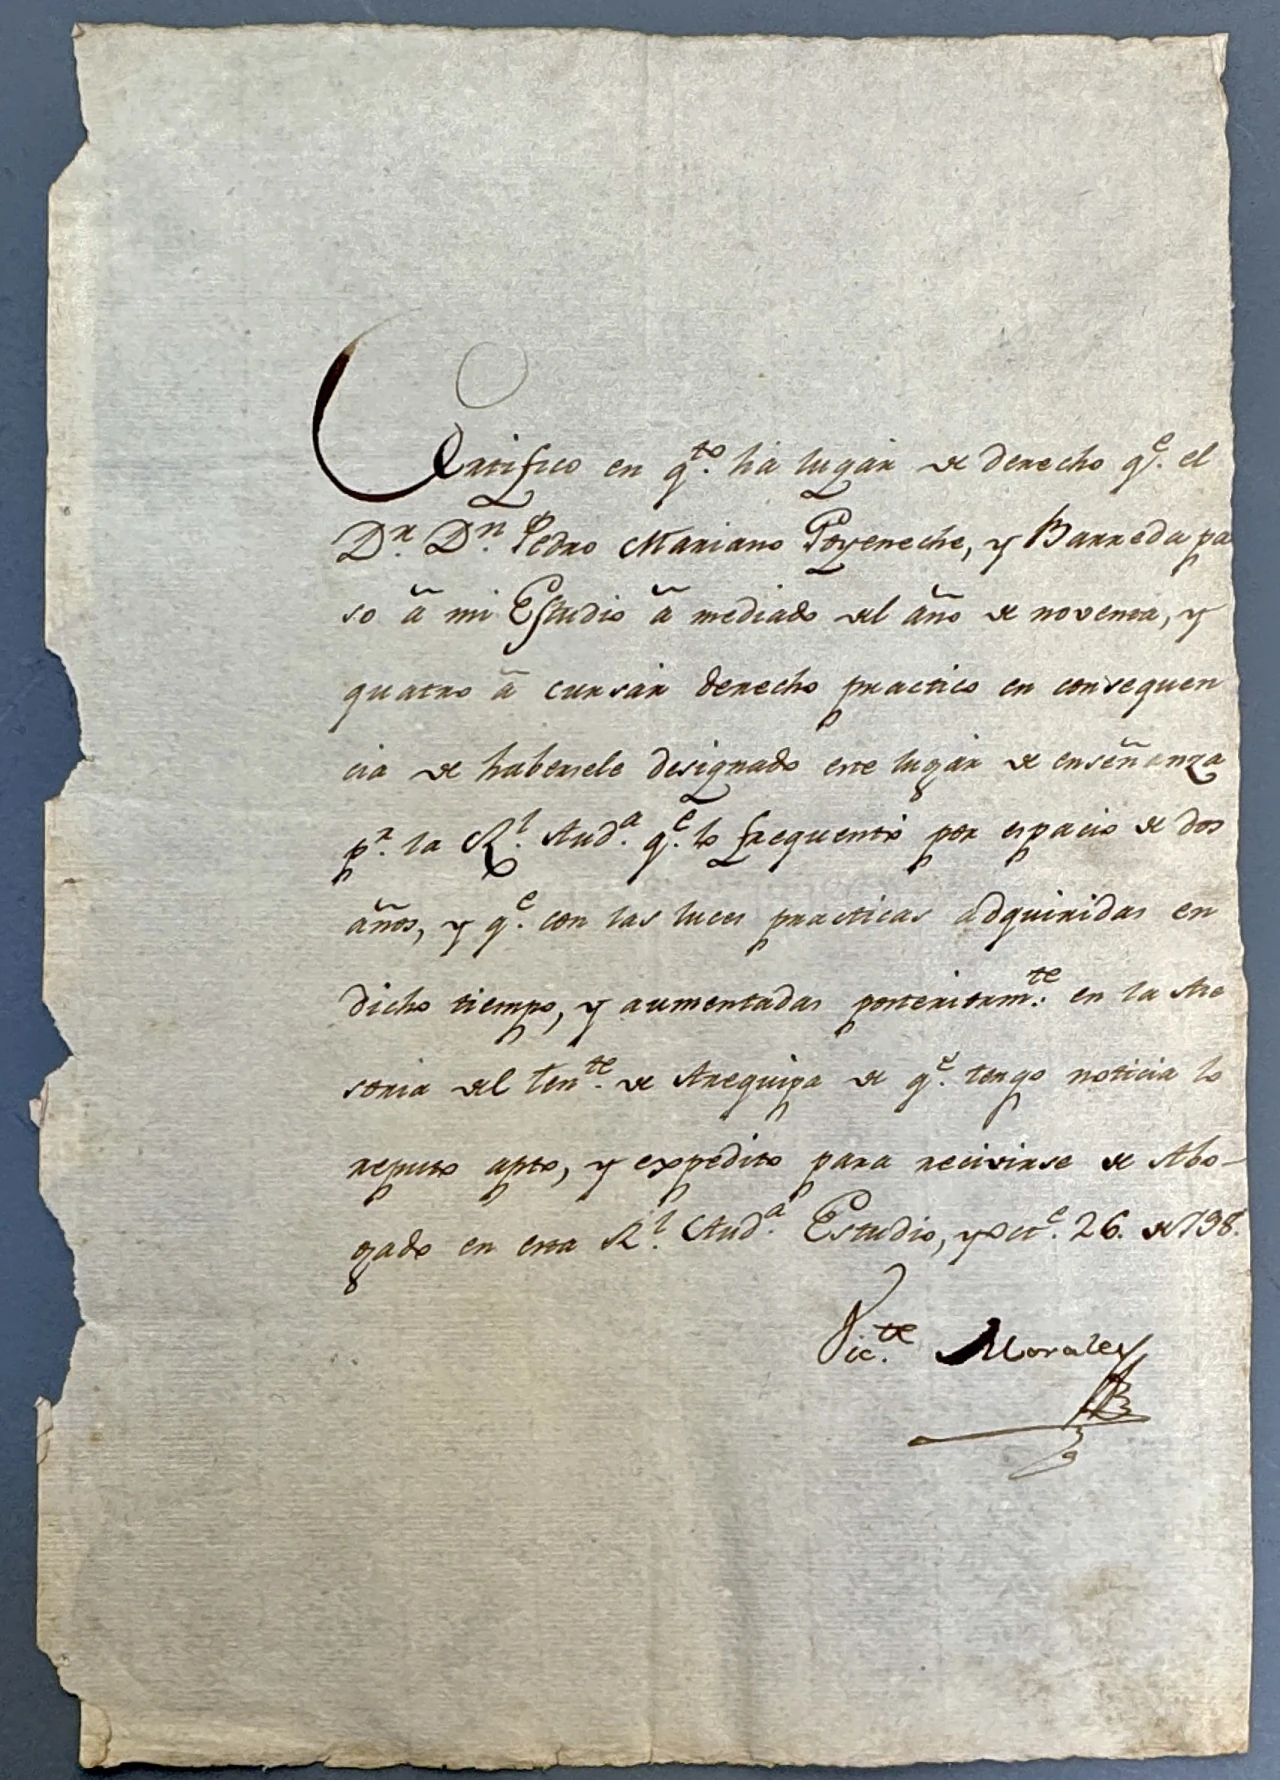 Certifico en q.to ha lugar de derecho q.e el
D.r D.n Pedro Mariano Goyeneche, y Barreda pa
so â mi Estudio â mediado del año de noventa, y
quatro â cursar derecho practico en consequen
cia de habersele designado este lugar de enseñanza
p.r la R.l Aud.a q.e lo frequentó por espacio de dos
años, y q.e con las luces practicas adquiridas en
dicho tiempo, y aumentadas posteriorm.te en la Ase
soria del Ten.te de Arequipa de q.e tengo noticia lo
reputo apto, y expedito para recivirse de Abo-
gado en esta R.l Aud.a Estudio, y Oct.e 26. de 798.
Vic.te Morales